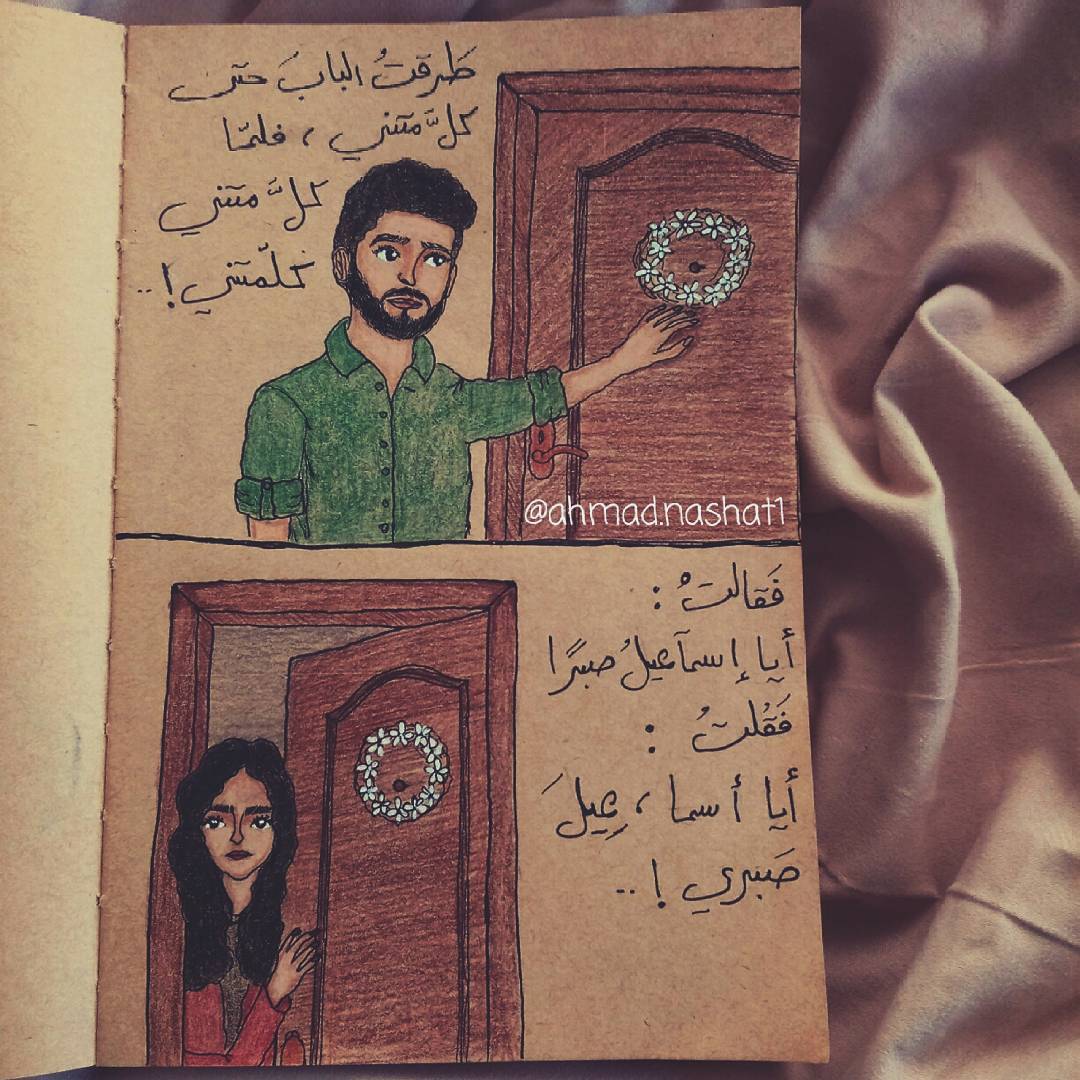 طَرقتُ البابَ حتى
كلَّ مَتني ، فلمّا
كلَّ مَتني
كلّمتني !..
@ahmad.nashat1
فَقالتْ :
أيا إسماعيلُ صبرًا
فَقُلتُ :
أيا أسما ، عِيلَ
صَبري !..